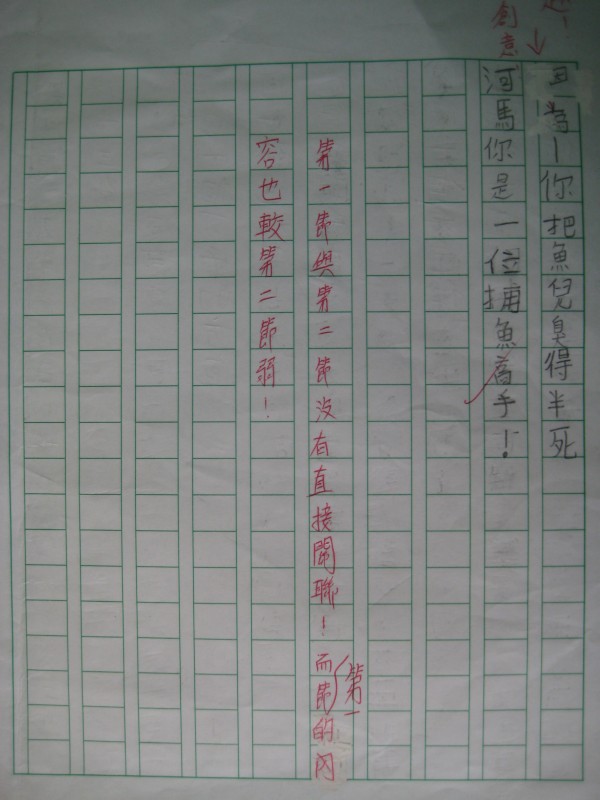 創意
因為一你把魚兒臭得半死
河馬你是一位捕魚高手！
第一節與第二節沒有直接關聯！而第一節的內
容也較第二節弱！